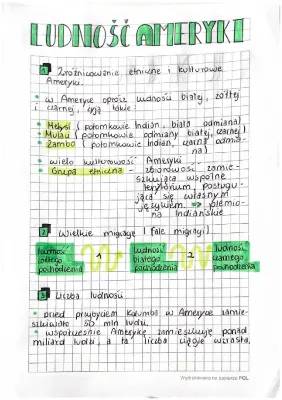 LUDNOŚĆ AMERYKI
1 Zróżnicowanie etniczne i kulturowe
Ameryki.
• w Ameryce oprócz ludności białej, żółtej
i czarnej, są takie
• Metysi (potomkowie Indian, biała odmiana)
• Mulaci (potomkowie odmiany białej, czarnej)
• Zambo (potomkowie Indian, czarna odmia-
na)
• wielo kulturowość Ameryki -
• Grupa etniczna - zbiorowość zamie-
szkująca wspólne
terytorium, posługu-
jąca się własnym
językiem. → plemio-
na Indiańskie
2 Wielkie migracje (fale migracji)
ludność
żółtego
pochodzenia
1
ludność
białego
pochodzenia
2
ludność
czarnego
pochodzenia
3 Liczba ludności
• przed przybyciem Kolumba w Ameryce zamie-
szkiwało 50 mln ludzi.
• współcześnie Amerykę zamieszkuje ponad
miliard ludzi, a ta liczba ciągle wzrasta.
Wydrukowano na papierze POL